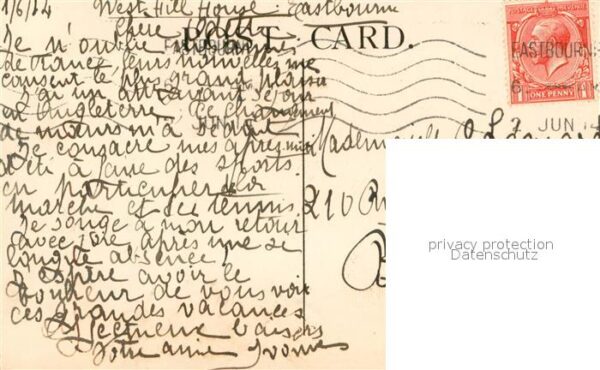 1/6/14 West Hill House. Eastbourne
Chère
POST CARD.
Je n'oublie
nouvelles me
causent le plus grand plaisir
J'ai un attrayant séjour
en Angleterre. Ce changement
de mœurs m'a
Je consacre mes après-midi
d'été à faire des sports
en particulier de la
marche et du tennis.
Je songe à mon retour
avec joie après une si
longue absence!
J'espère avoir le
bonheur de vous voir
ces grandes vacances
Affectueux baisers
Votre amie Yvonne
EASTBOURNE
ONE PENNY
JUN 14
Mademoiselle
210
privacy protection
Datenschutz